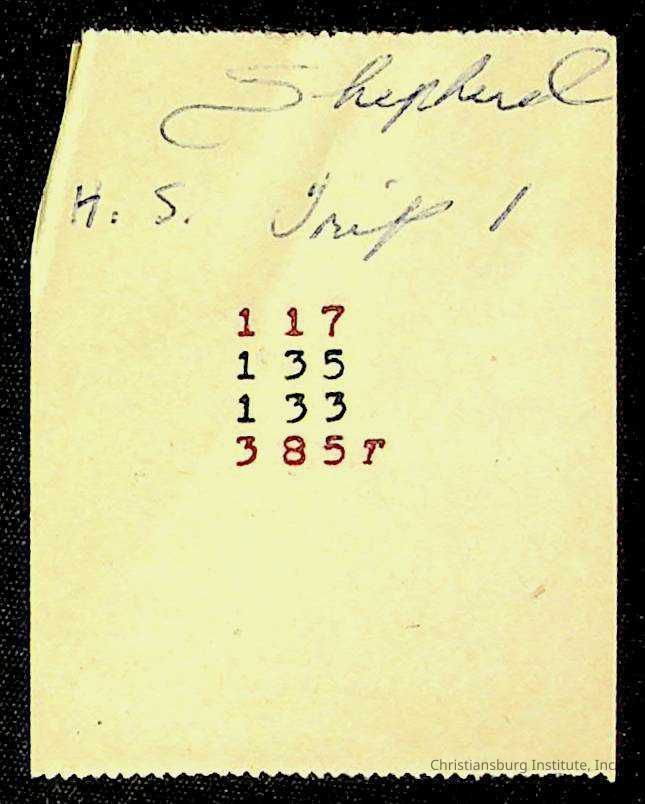 Shepherd
H. S. Trip 1
1 17
1 35
1 33
3 85T
Christiansburg Institute, Inc